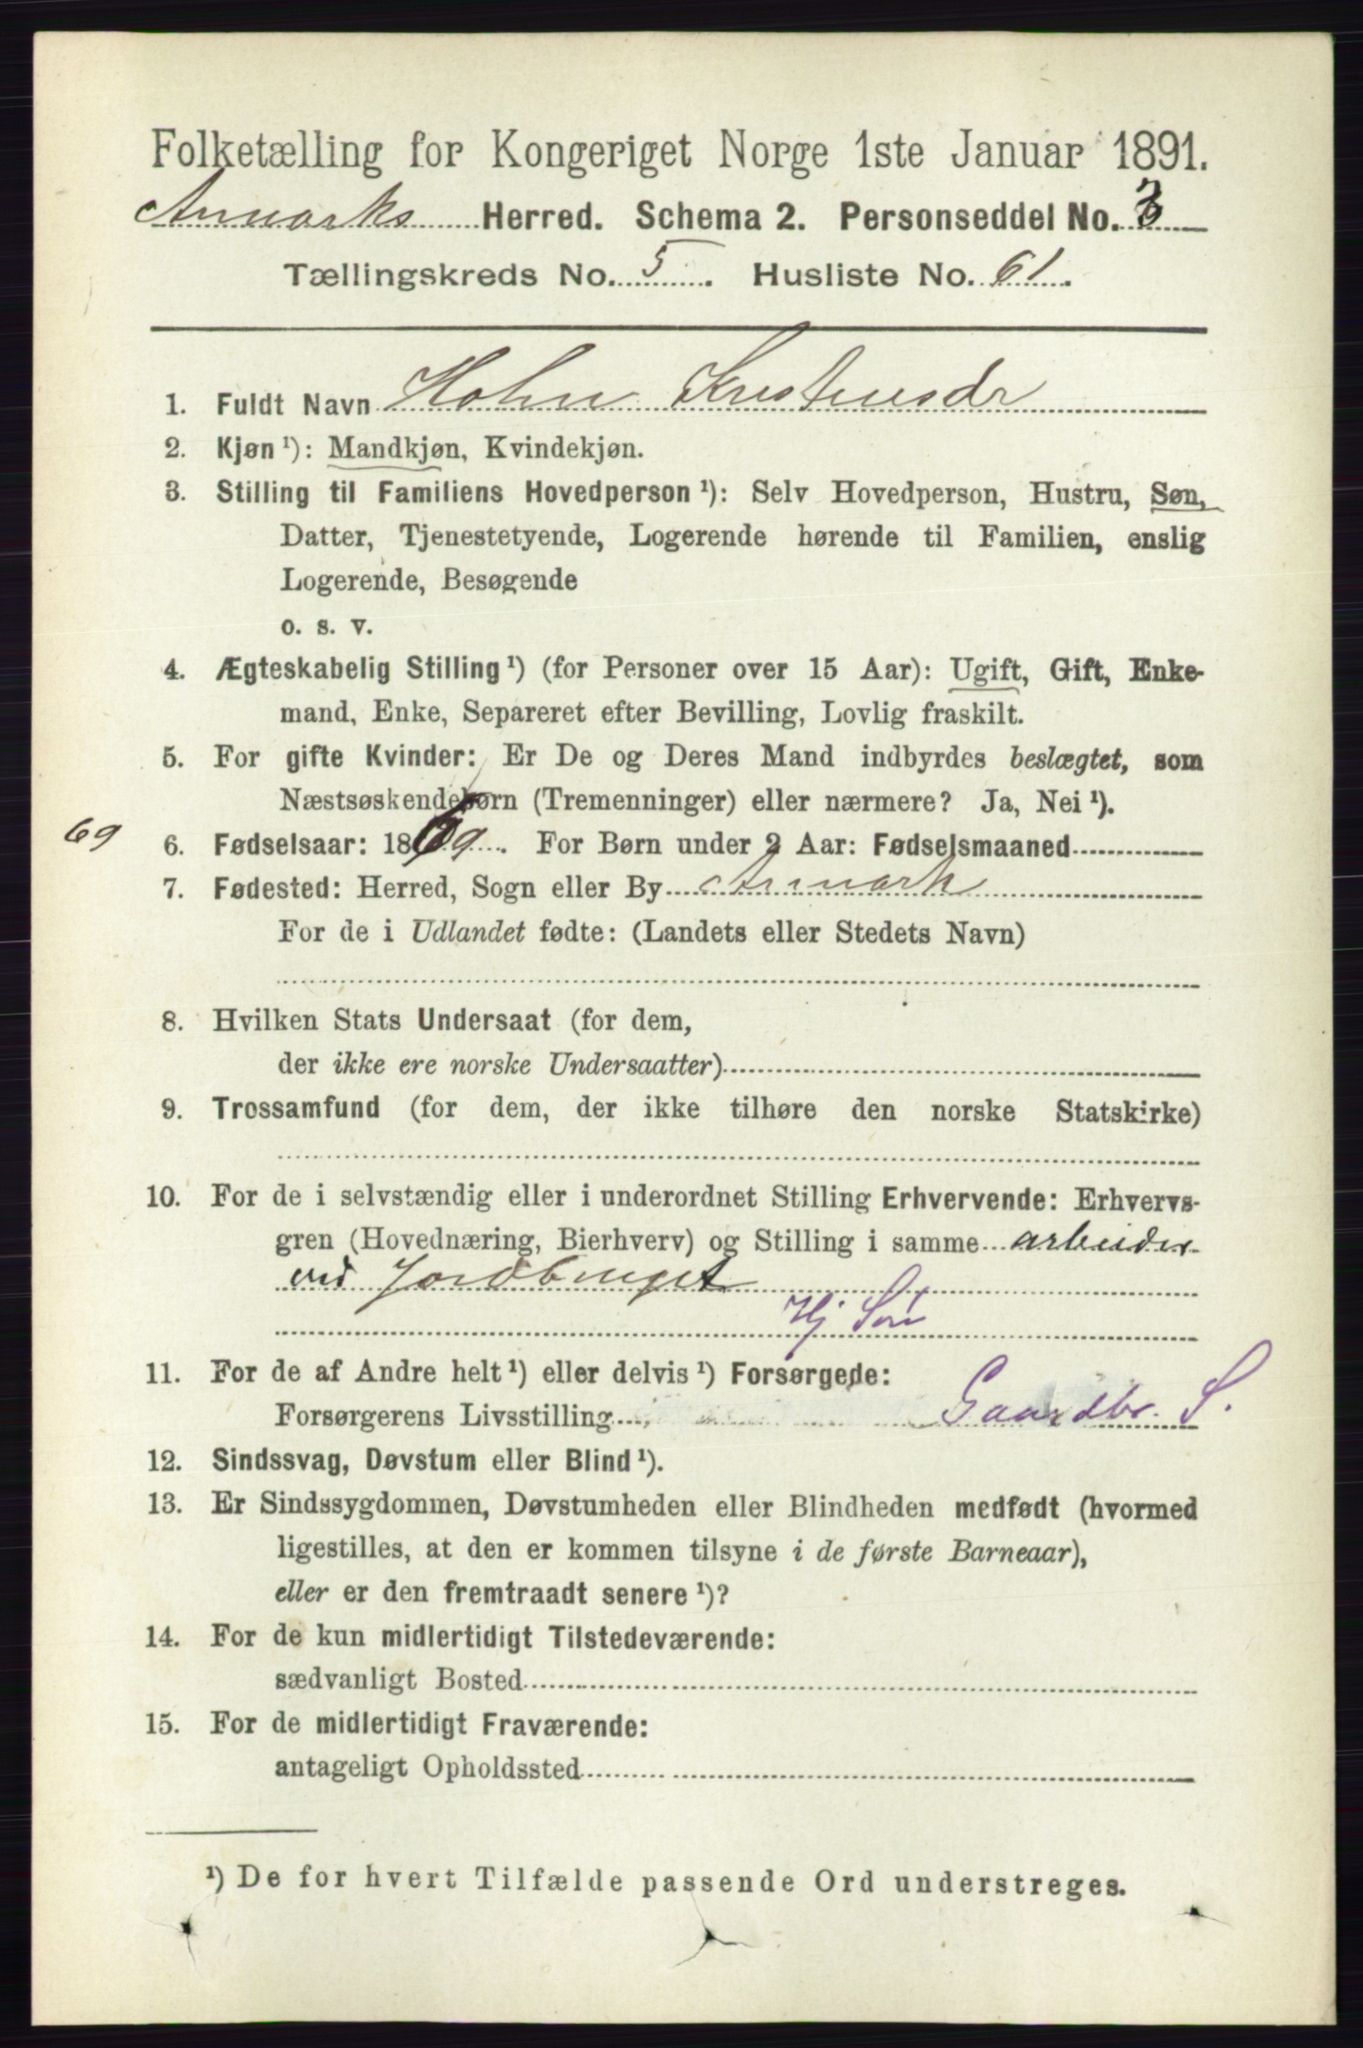 Folketælling for Kongeriget Norge 1ste Januar 1891.
Aremarks Herred. Schema 2. Personseddel No. 3
Tællingskreds No. 5. Husliste No. 61.
1. Fuldt Navn
2. Kjøn ¹): Mandkjøn, Kvindekjøn.
3. Stilling til Familiens Hovedperson ¹): Selv Hovedperson, Hustru, Søn,
Datter, Tjenestetyende, Logerende hørende til Familien, enslig
Logerende, Besøgende
o. s. v.
4. Ægteskabelig Stilling ¹) (for Personer over 15 Aar): Ugift, Gift, Enke-
mand, Enke, Separeret efter Bevilling, Lovlig fraskilt.
5. For gifte Kvinder: Er De og Deres Mand indbyrdes beslægtet, som
Næstsøskendebørn (Tremenninger) eller nærmere? Ja, Nei ¹).
69 6. Fødselsaar: 1869. For Børn under 2 Aar: Fødselsmaaned
7. Fødested: Herred, Sogn eller By Aremark
For de i Udlandet fødte: (Landets eller Stedets Navn)
8. Hvilken Stats Undersaat (for dem,
der ikke ere norske Undersaatter)
9. Trossamfund (for dem, der ikke tilhøre den norske Statskirke)
10. For de i selvstændig eller i underordnet Stilling Erhvervende: Erhvervs-
gren (Hovednæring, Bierhverv) og Stilling i samme arbeider
ved Jordbruget
Hj Søn
11. For de af Andre helt ¹) eller delvis ¹) Forsørgede:
Forsørgerens Livsstilling Gaardbr. S.
12. Sindssvag, Døvstum eller Blind ¹).
13. Er Sindssygdommen, Døvstumheden eller Blindheden medfødt (hvormed
ligestilles, at den er kommen tilsyne i de første Barneaar),
eller er den fremtraadt senere ¹)?
14. For de kun midlertidigt Tilstedeværende:
sædvanligt Bosted
15. For de midlertidigt Fraværende:
antageligt Opholdssted
¹) De for hvert Tilfælde passende Ord understreges.